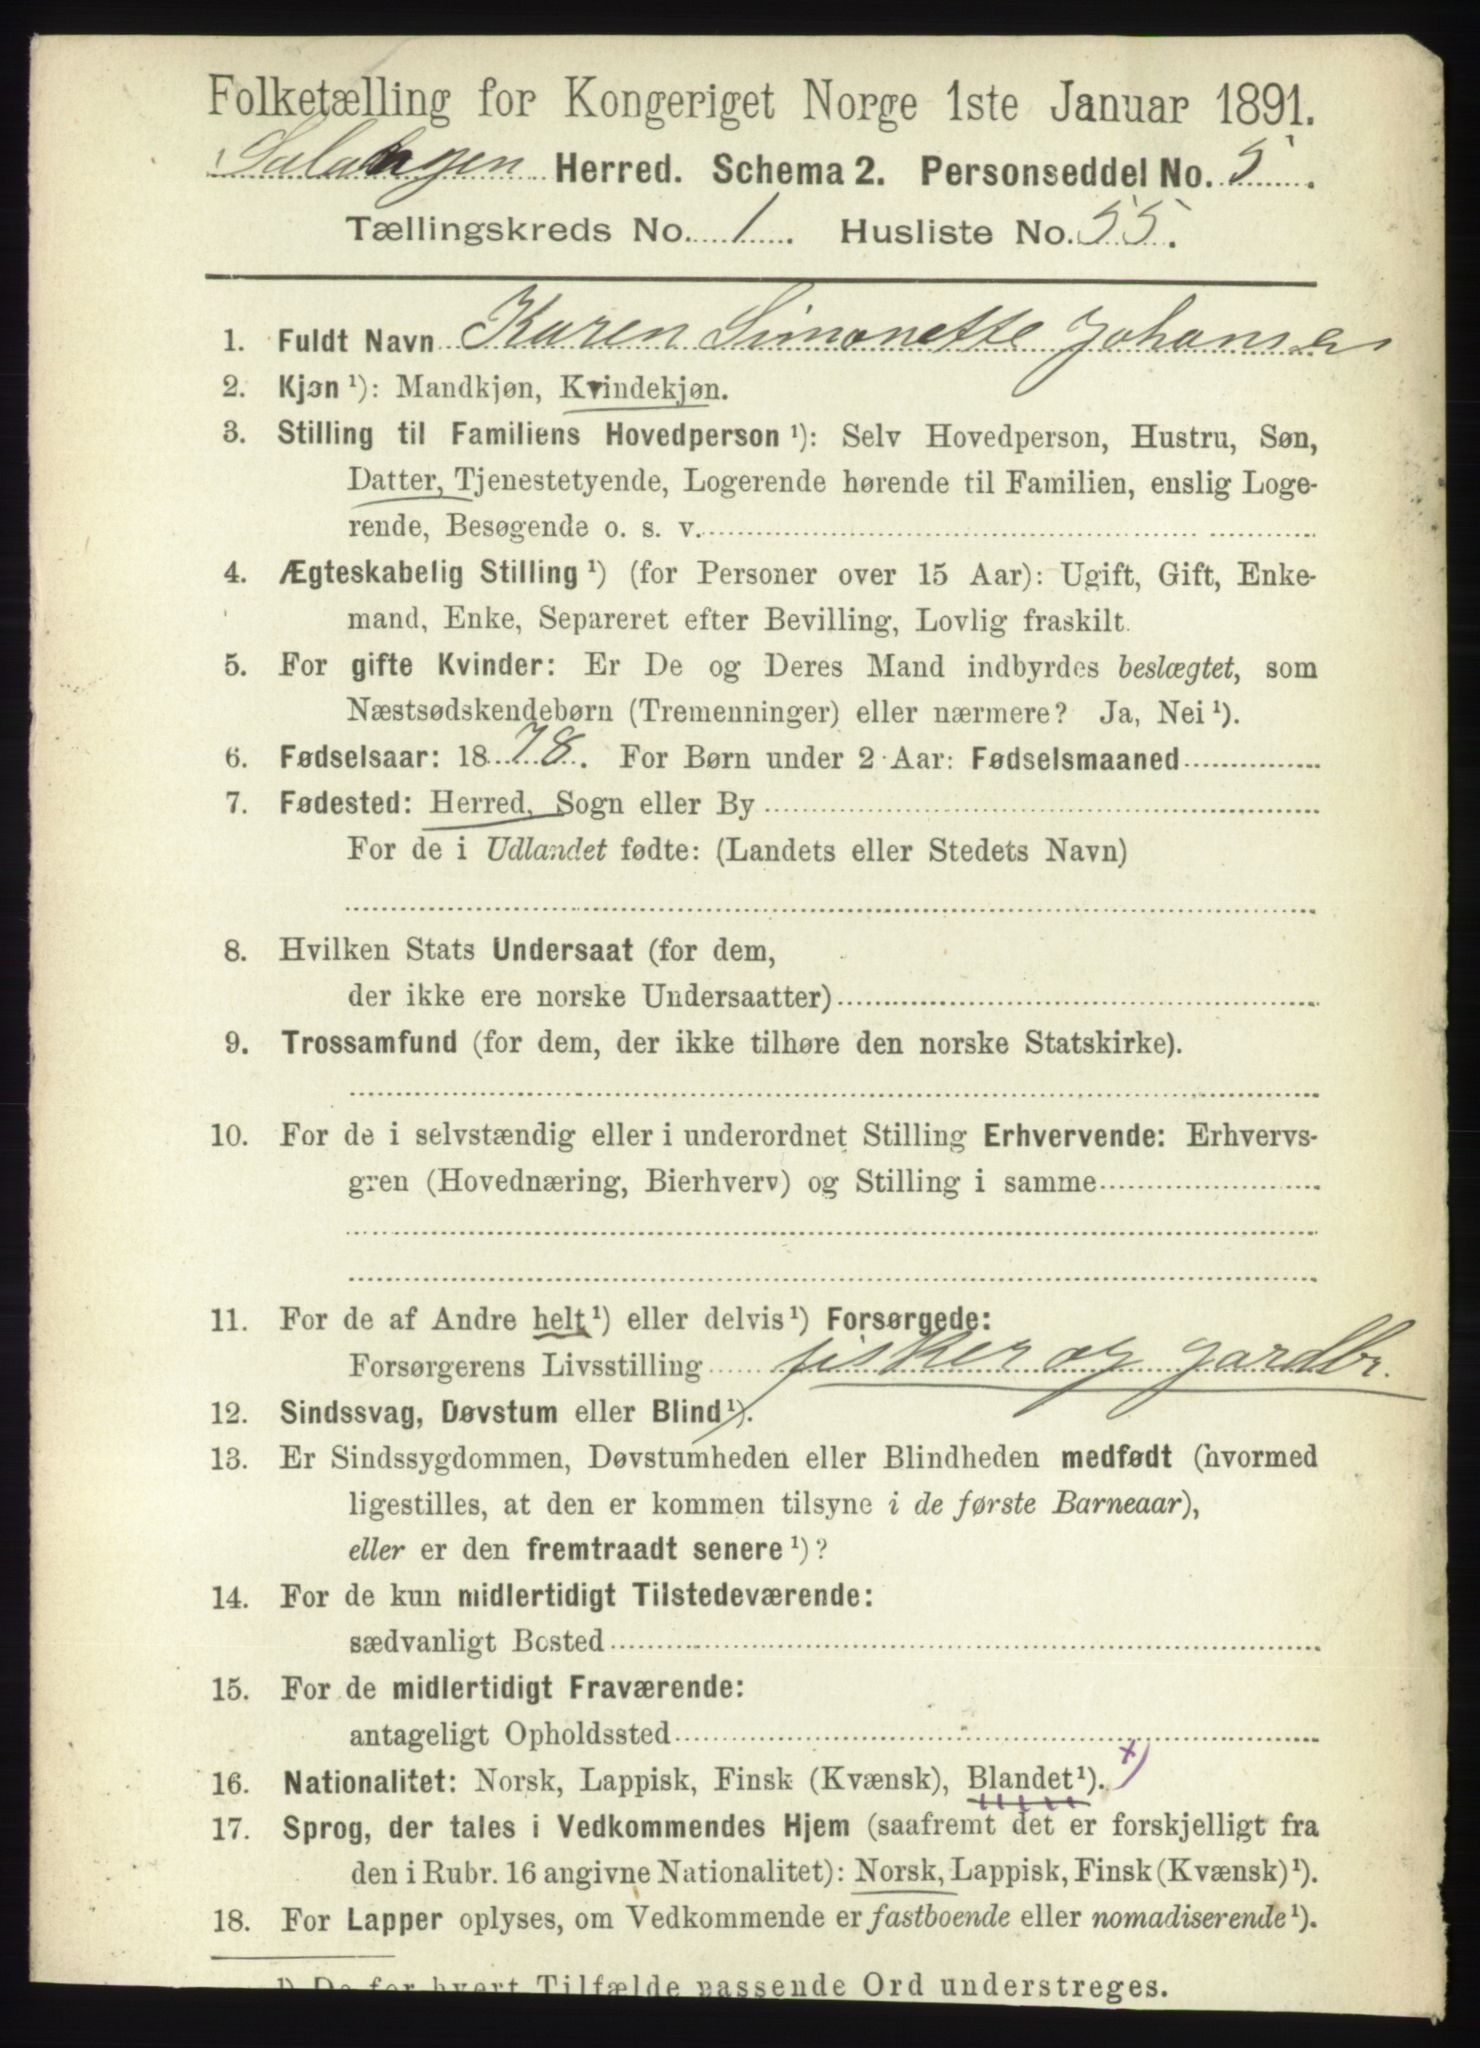 Folketælling for Kongeriget Norge 1ste Januar 1891.
Salangen Herred. Schema 2. Personseddel No. 5.
Tællingskreds No. 1. Husliste No. 55.
1. Fuldt Navn Karen Simonette Johansen
2. Kjøn ¹): Mandkjøn, Kvindekjøn.
3. Stilling til Familiens Hovedperson ¹): Selv Hovedperson, Hustru, Søn,
Datter, Tjenestetyende, Logerende hørende til Familien, enslig Loge-
rende, Besøgende o. s. v.
4. Ægteskabelig Stilling ¹) (for Personer over 15 Aar): Ugift, Gift, Enke-
mand, Enke, Separeret efter Bevilling, Lovlig fraskilt.
5. For gifte Kvinder: Er De og Deres Mand indbyrdes beslægtet, som
Næstsødskendebørn (Tremenninger) eller nærmere? Ja, Nei ¹).
6. Fødselsaar: 1878. For Børn under 2 Aar: Fødselsmaaned
7. Fødested: Herred, Sogn eller By
For de i Udlandet fødte: (Landets eller Stedets Navn)
8. Hvilken Stats Undersaat (for dem,
der ikke ere norske Undersaatter)
9. Trossamfund (for dem, der ikke tilhøre den norske Statskirke).
10. For de i selvstændig eller i underordnet Stilling Erhvervende: Erhvervs-
gren (Hovednæring, Bierhverv) og Stilling i samme
11. For de af Andre helt ¹) eller delvis ¹) Forsørgede:
Forsørgerens Livsstilling fisker og gardbr.
12. Sindssvag, Døvstum eller Blind ¹).
13. Er Sindssygdommen, Døvstumheden eller Blindheden medfødt (hvormed
ligestilles, at den er kommen tilsyne i de første Barneaar),
eller er den fremtraadt senere ¹)?
14. For de kun midlertidigt Tilstedeværende:
sædvanligt Bosted
15. For de midlertidigt Fraværende:
antageligt Opholdssted
16. Nationalitet: Norsk, Lappisk, Finsk (Kvænsk), Blandet ¹). x)
17. Sprog, der tales i Vedkommendes Hjem (saafremt det er forskjelligt fra
den i Rubr. 16 angivne Nationalitet): Norsk, Lappisk, Finsk (Kvænsk) ¹).
18. For Lapper oplyses, om Vedkommende er fastboende eller nomadiserende ¹).
¹) De for hvert Tilfælde passende Ord understreges.